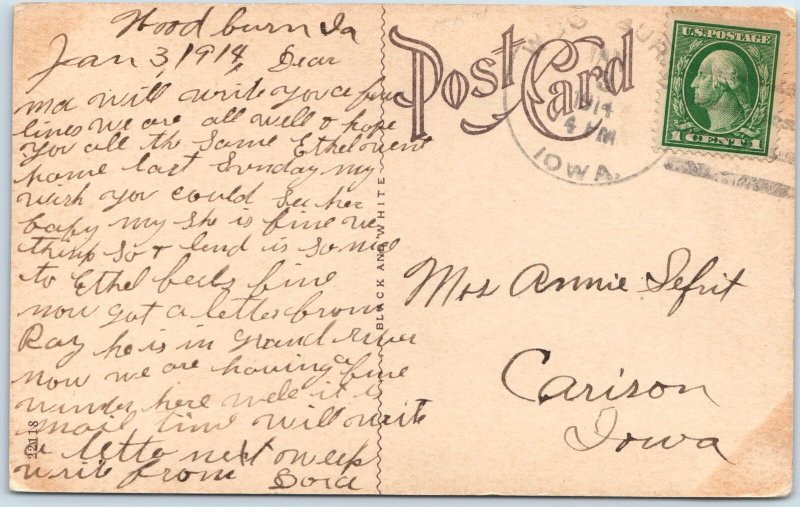 Wood burn Ia
Jan 3/1914 Dear
ma will write you a few
lines we are all well & hope
you all the same Ethel went
home last Sunday my
wish you could See her
baby my she is fine we
think so & is so nice
to Ethel feels fine
now got a letter from
Ray he is in grand river
now we are having a fine
winder here well it is
mail time will write
a letter next week
write from Dora
Post Card
WOODBURN
JAN
3
1914
4 PM
IOWA.
U.S. POSTAGE
1 CENT 1
Mrs Annie Sefrit
Carison
Iowa
BLACK AND WHITE
22118